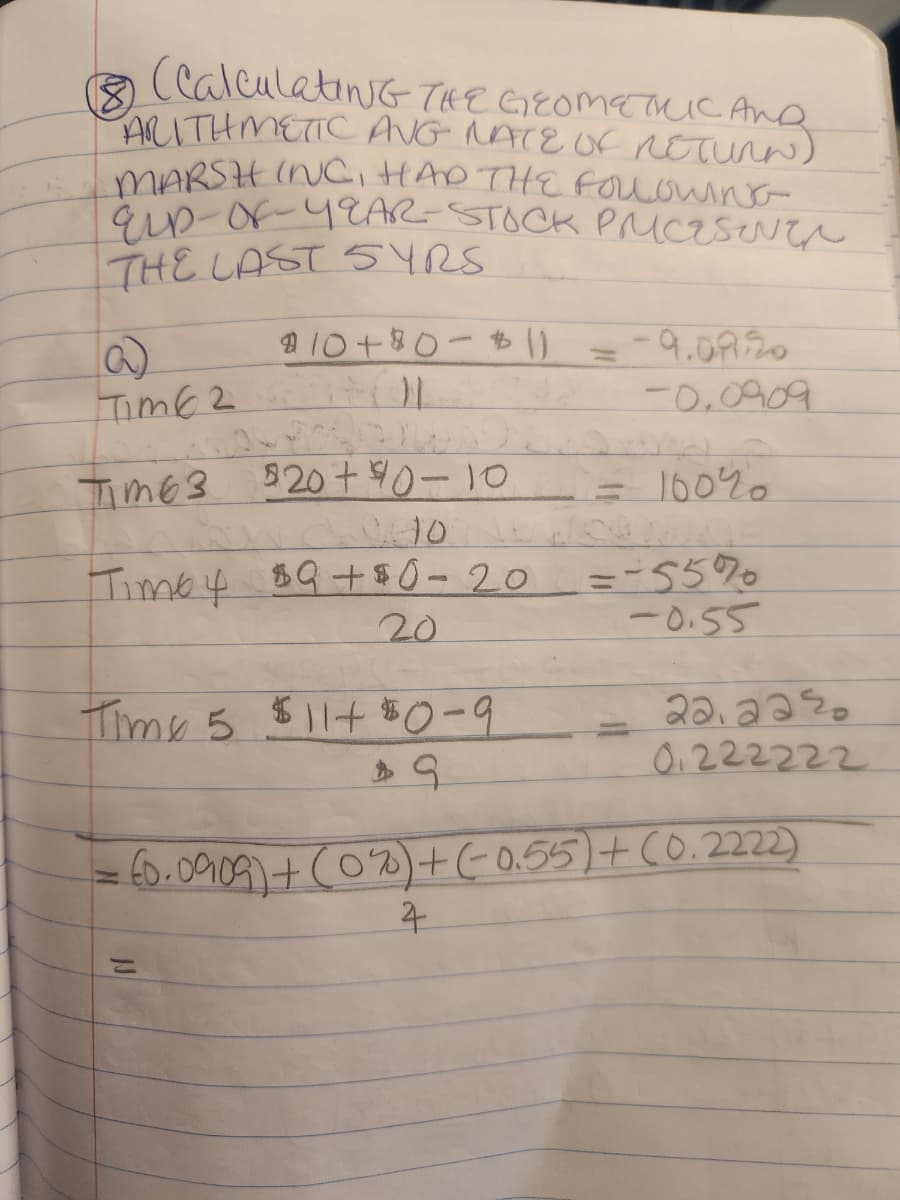 ⑧ (Calculating THE GEOMETRIC AND
ARITHMETIC AVG RATE OF RETURN)
MARSH INC, HAD THE FOLLOWING
END-OF-YEAR-STOCK PRICES OVER
THE LAST 5YRS
a) $10+$0-$11 = -9.09%
Time 2 11 -0.0909
Time 3 $20+$0-10 = 100%
10
Time 4 $9+$0-20 =-55%
20 -0.55
Time 5 $11+$0-9 = 22.22%
$9 0.222222
= (-0.0909)+(0%)+(-0.55)+(0.2222)
4
=